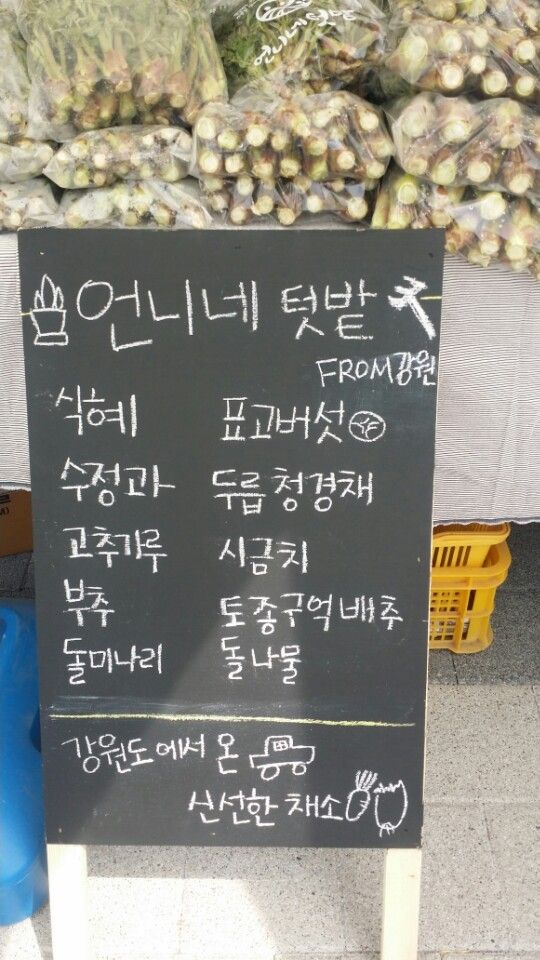 언니네 텃밭
언니네 텃밭
FROM강원
식혜 표고버섯
수정과 두릅 청경채
고추가루 시금치
부추 토종구억배추
돌미나리 돌나물
강원도에서 온
신선한 채소